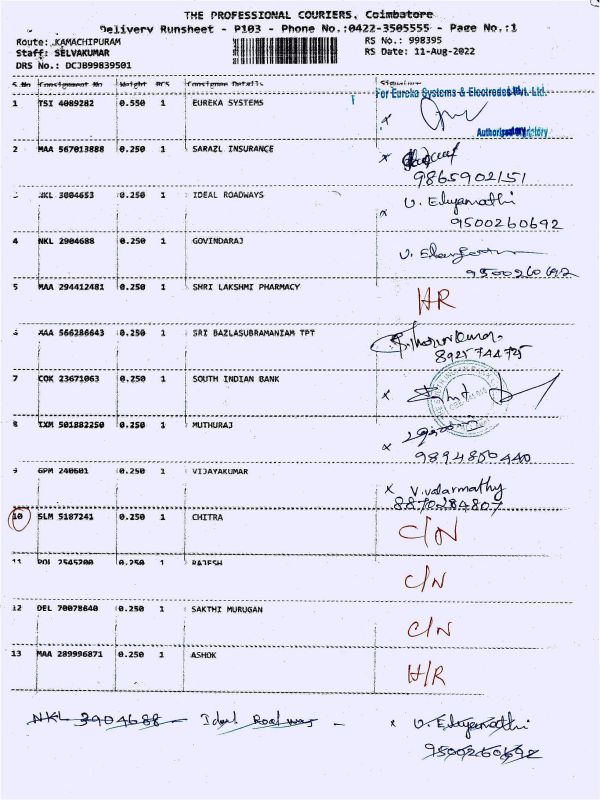 THE PROFESSIONAL COURIERS, Coimbatore
Delivery Runsheet - P103 - Phone No.:0422-3505555 - Page No.:1
Route: KAMACHIPURAM RS No.: 998395
Staff: SELVAKUMAR RS Date: 11-Aug-2022
DRS No.: DCJB99839501
S.No Consignment No Weight PCS Consignee Details Signature
For Eureka Systems & Electrodes Pvt. Ltd.
1 TSI 4089282 0.550 1 EUREKA SYSTEMS x
Authorised Signatory
2 MAA 567013888 0.250 1 SARAZL INSURANCE x
9865902151
3 NKL 3004653 0.250 1 IDEAL ROADWAYS x U. Elayamathi
9500260692
4 NKL 2904688 0.250 1 GOVINDARAJ
9500260692
5 MAA 294412481 0.250 1 SHRI LAKSHMI PHARMACY HR
6 AAA 566286643 0.250 1 SRI BAZLASUBRAMANIAM TPT
8925744725
7 COK 23671063 0.250 1 SOUTH INDIAN BANK x
8 TXM 501882250 0.250 1 MUTHURAJ x
9894850440
9 GPM 240601 0.250 1 VIJAYAKUMAR x V. Valarmathy
8870284807
10 SLM 5187241 0.250 1 CHITRA C/N
11 POL 2545200 0.250 1 RAJESH C/N
12 DEL 70078640 0.250 1 SAKTHI MURUGAN C/N
13 MAA 289996871 0.250 1 ASHOK H/R
NKL 3904688 - Ideal Roadways - x U. Elayamathi
9500260692